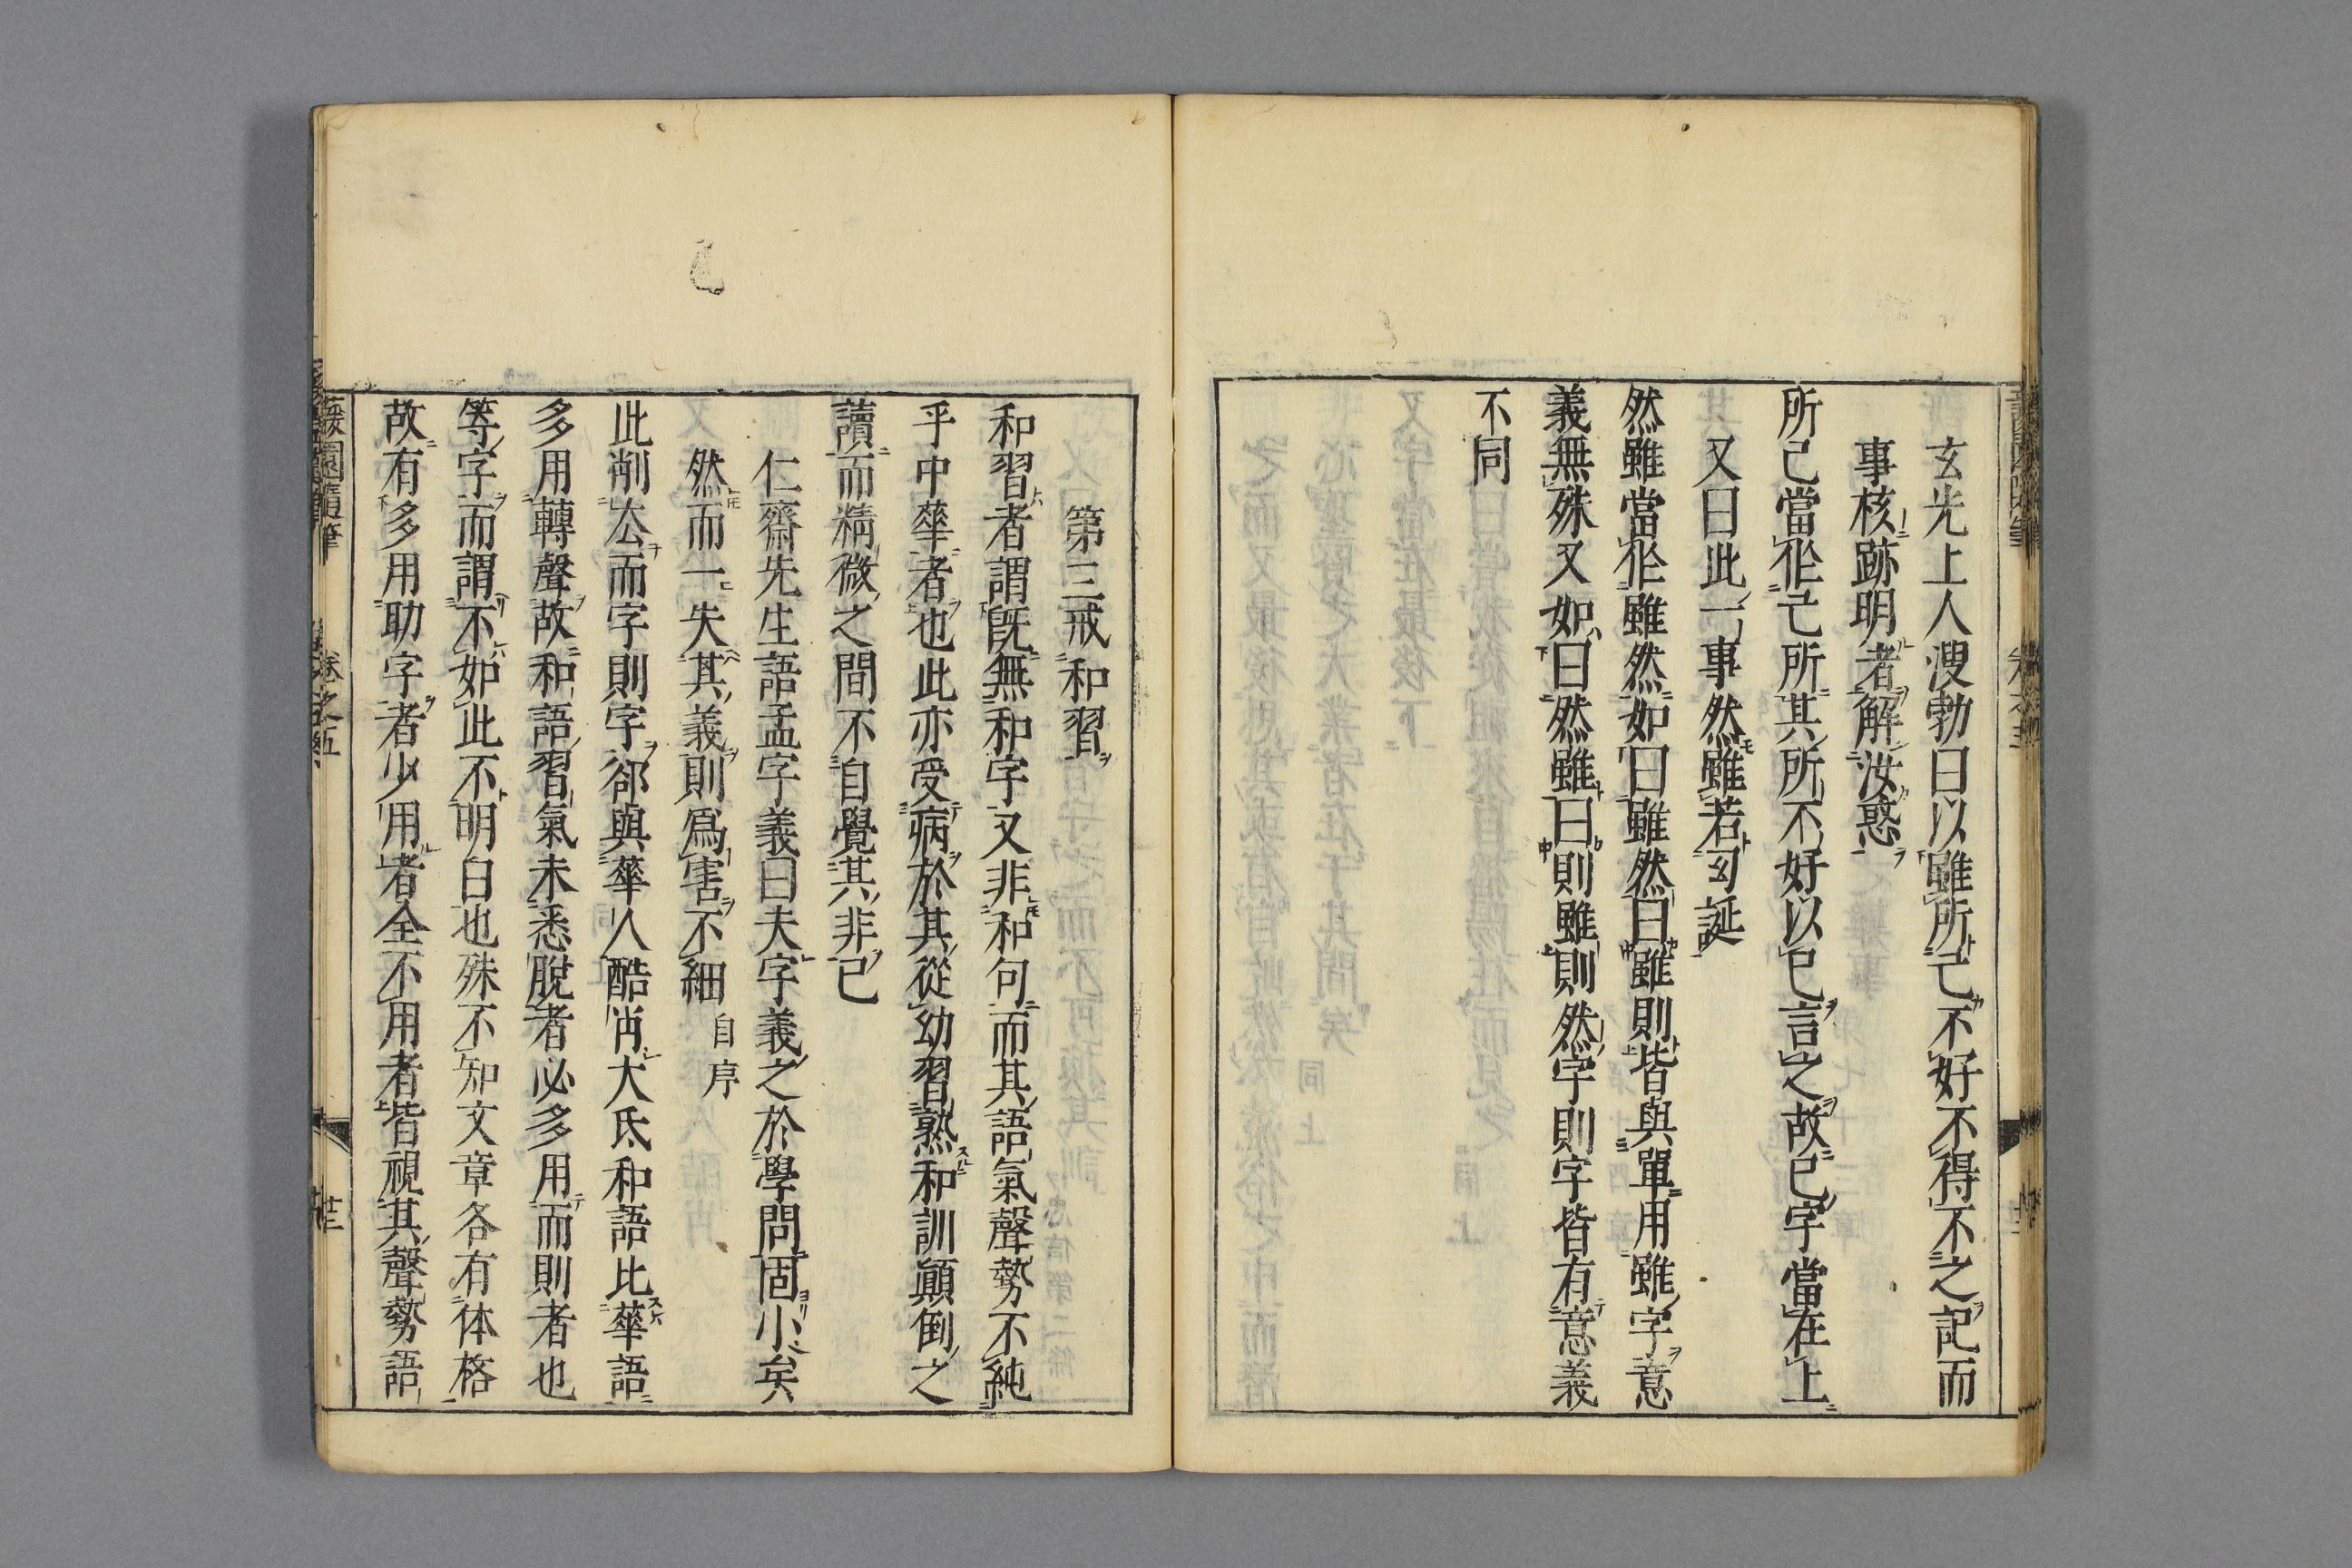 玄光上人溲勃曰以雖所己不好不得不之記而
事核跡明者解汝惑
所己當作己所其所不好以已言之故已字當在上
又曰此一事然雖若可誕
然雖當作雖然如曰雖然曰雖則皆與單用雖字意
義無殊又如曰然雖曰則雖則然字則字皆有意義
不同
第三戒和習
和習者謂旣無和字又非和句而其語氣聲勢不純
乎中華者也此亦受病於其從幼習熟和訓顚倒之
讀而精微之間不自覺其非已
仁齋先生語孟字義曰夫字義之於學問固小矣
然而一失其義則爲害不細 自序
此削厺而字則字郤與華人酷肖大氐和語比華語
多用轉聲故和語習氣未悉脫者必多用而則者也
等字而謂不如此不明白也殊不知文章各有体格
故有多用助字者少用者全不用者皆視其聲勢語
蘐園隨筆 卷之五 廿三